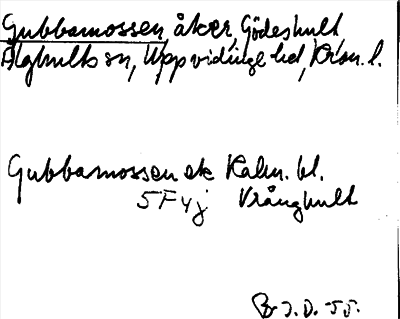 Gubbamossen, åker, Gödeshult
Älghults sn, Uppvidinge hd, Kron. l.
Gubbamossen ek Kalm. bl.
5F4j Vrånghult
B. J. D. -55.